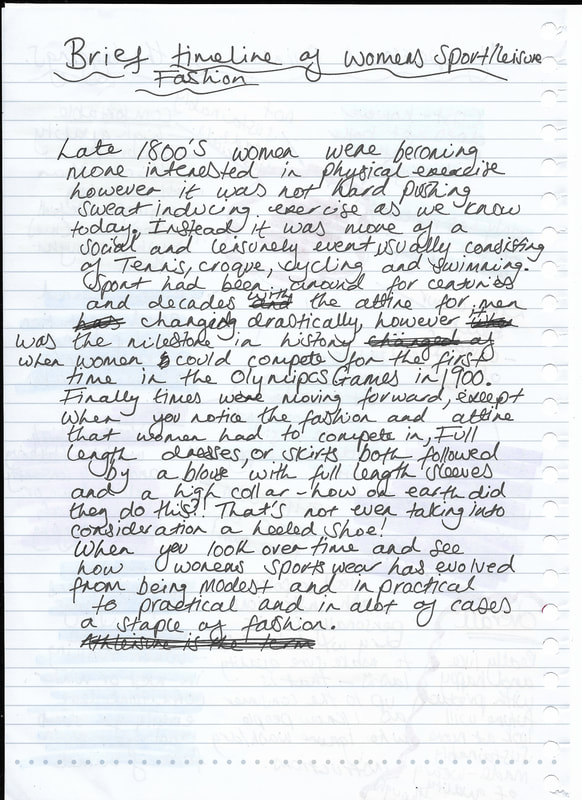 Brief timeline of womens sport/leisure
Fashion
Late 1800's women were becoming
more interested in physical exercise
however it was not hard pushing
sweat inducing exercise as we know
today. Instead it was more of a
social and leisurely event usually consisting
of Tennis, croque, cycling and swimming.
Sport had been around for centuries
and decades and with the attire for men
has changing drastically, however
was the milestone in history changed at
when women could compete for the first
time in the Olympics Games in 1900.
Finally times were moving forward, except
when you notice the fashion and attire
that women had to compete in, Full
length dresses, or skirts both followed
by a blouse with full length sleeves
and a high collar - how on earth did
they do this?! That's not even taking into
consideration a heeled shoe!
When you look over time and see
how womens sportswear has evolved
from being modest and inpractical
to practical and in alot of cases
a staple of fashion.
Athleisure is the term